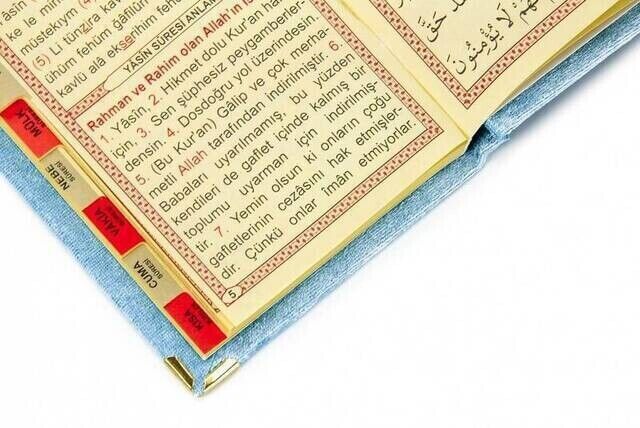 ke le min
müstekıym
(5) Li tünzira kav
ühüm fehüm gâfilûn
kavlü alâ ekserihim fehüm
YÂSİN SÛRESİ ANLAMI
Rahman ve Rahim olan Allah'ın is
1. Yâsîn, 2. Hikmet dolu Kur'an hak
için, 3. Sen şüphesiz peygamberler-
densin. 4. Dosdoğru yol üzerindesin.
5. (Bu Kur'an) Gâlip ve çok merha-
metli Allah tarafından indirilmiştir. 6.
Babaları uyarılmamış, bu yüzden
kendileri de gaflet içinde kalmış bir
toplumu uyarman için indirilmiş-
tir. 7. Yemin olsun ki onların çoğu
gafletlerinin cezâsını hak etmişler-
dir. Çünkü onlar îmân etmiyorlar.
5
حَقَّ
لَا يُؤْمِنُونَ
MÜLK
NEBE
SÛRESİ
VÂKIA
CUMA
SÛRESİ
KISA